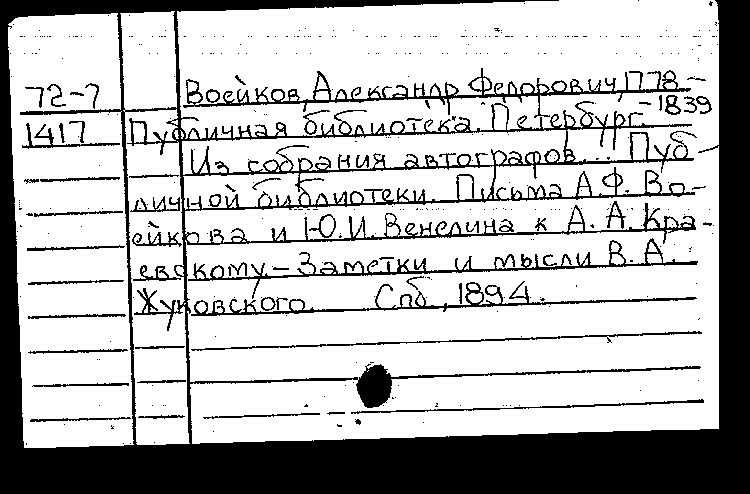 72-7 Воейков, Александр Федорович, 1778-
-1839
1417 Публичная библиотека. Петербург.
Из собрания автографов... Пуб-
личной библиотеки. Письма А.Ф. Во-
ейкова и Ю.И. Венелина к А. А. Кра-
евскому - Заметки и мысли В. А.
Жуковского. Спб., 1894.